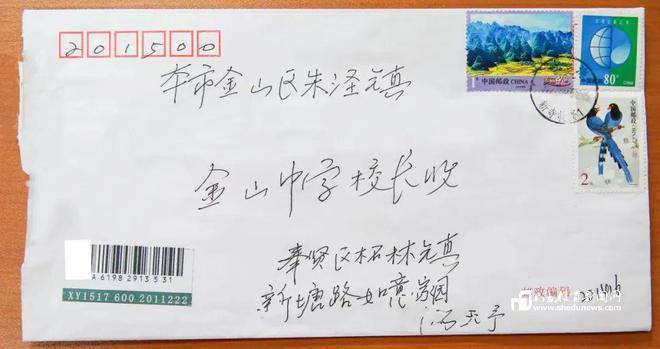 201500
本市金山区朱泾镇
金山中学校长收
奉贤区柘林镇
新塘路如意家园
邮政编码
中国邮政 CHINA
中国邮政
80分
中国邮政
2元
A 6198 2913 5 31
XY1517 600 2011222
www.shedunews.com